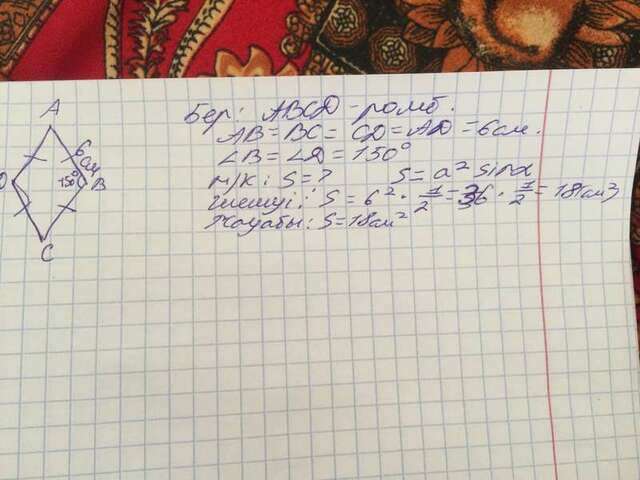 D
A
C
B
150°
6 см
Бер: ABCD - ромб.
AB = BC = CD = AD = 6 см.
∠B = ∠D = 150°
М/К: S = ? S = a² sin α
Шешуі: S = 6² · 1/2 = 36 · 1/2 = 18 см²
Жауабы: S = 18 см²